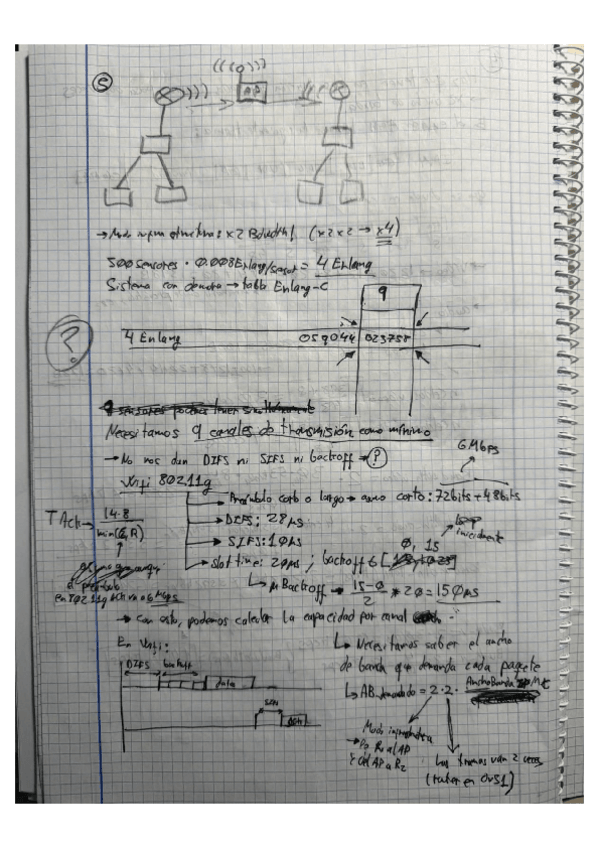 5
AP
→ Modo infraestructura x2 Bandwidth! (x2 x2 → x4)
500 sensores · 0.008 Erlang/sensor = 4 Erlang
Sistema con demora → tabla Erlang-C
9
?
4 Erlang 059044 023758
Necesitamos 9 canales de transmisión como mínimo
→ No nos dan DIFS ni SIFS ni backoff → ?
6 Mbps
Wifi 802.11g
Preámbulo corto o largo → asumo corto: 72bits + 48bits
TAck → 14·8 / min(6,R)
→ DIFS: 28 µs
→ SIFS: 10 µs
0, 15
inicialmente
→ slot time: 20µs ; backoff ∈ [
→ µBackoff → 15-0 / 2 * 20 = 150 µs
en 802.11g 6 Mbps
→ con esto, podemos calcular la capacidad por canal
En Wifi:
DIFS backoff
data
SIFS
ACK
↳ Necesitamos saber el ancho
de banda que demanda cada paquete
↳ AB = 2·2· AnchoBanda
Modo infraestructura
→ De R1 al AP
y del AP a R2
Las tramas van 2 veces